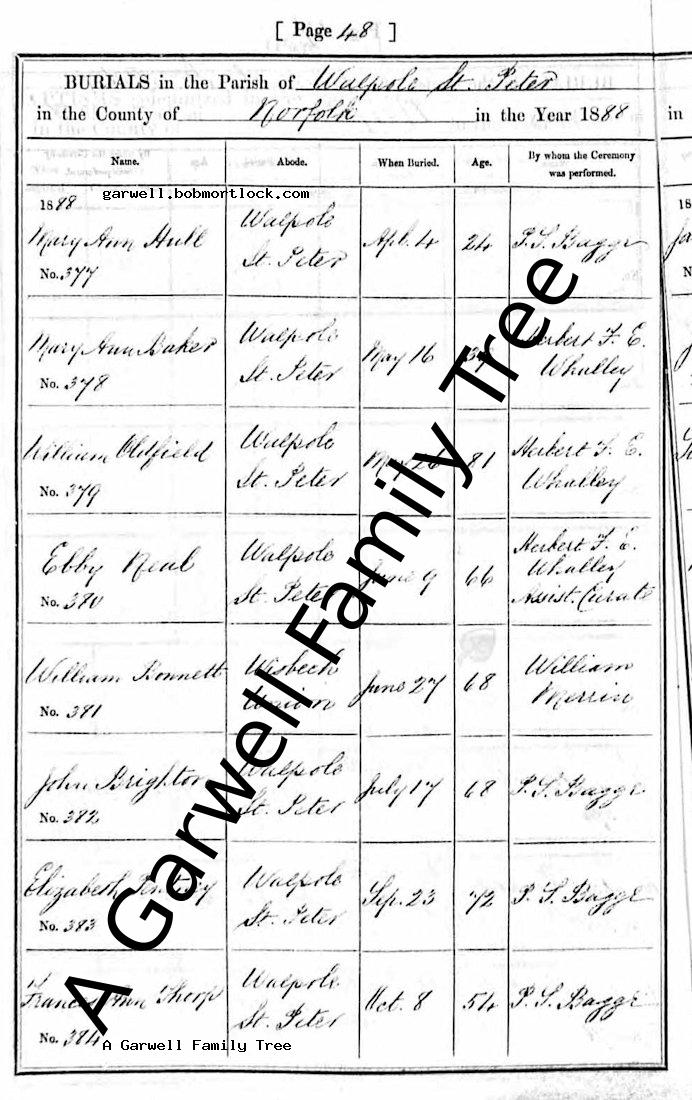 [ Page 48 ]
BURIALS in the Parish of Walpole St. Peter
in the County of Norfolk in the Year 1888
Name. Abode. When Buried. Age. By whom the Ceremony was performed.
garwell.bobmortlock.com
1888
Mary Ann Hull Walpole St. Peter Apl. 4 24 P. S. Bagge
No. 377
Mary Ann Baker Walpole St. Peter May 16 Herbert F. E. Whalley
No. 378
William Oldfield Walpole St. Peter May 26 81 Herbert F. E. Whalley
No. 379
Ebby Neal Walpole St. Peter June 9 66 Herbert F. E. Whalley Assist. Curate
No. 380
William Bonnett Wisbech Union June 27 68 William Merrin
No. 381
John Brighton Walpole St. Peter July 17 68 P. S. Bagge
No. 382
Elizabeth Walpole St. Peter Sep. 23 72 P. S. Bagge
No. 383
Frances Ann Thorp Walpole St. Peter Oct. 8 54 P. S. Bagge
No. 384
A Garwell Family Tree
A Garwell Family Tree
in
18